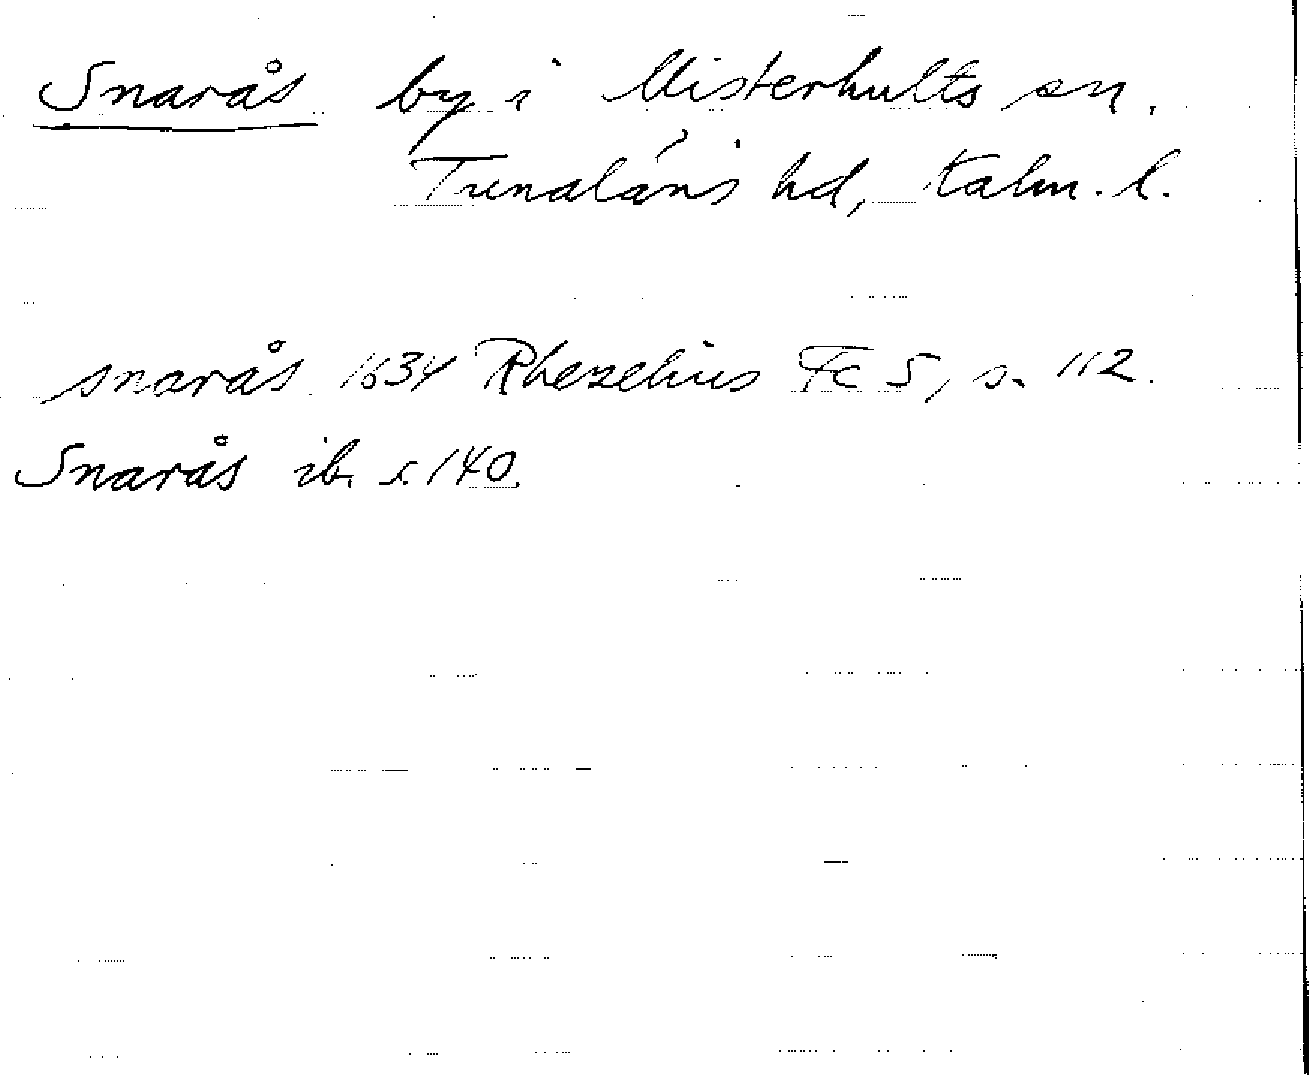 Snarås by i Misterhults sn.
Tunaläns hd, Kalm. l.
snarås 1634 Rhezelius Fc 5, s. 112.
Snarås ib. s. 140.